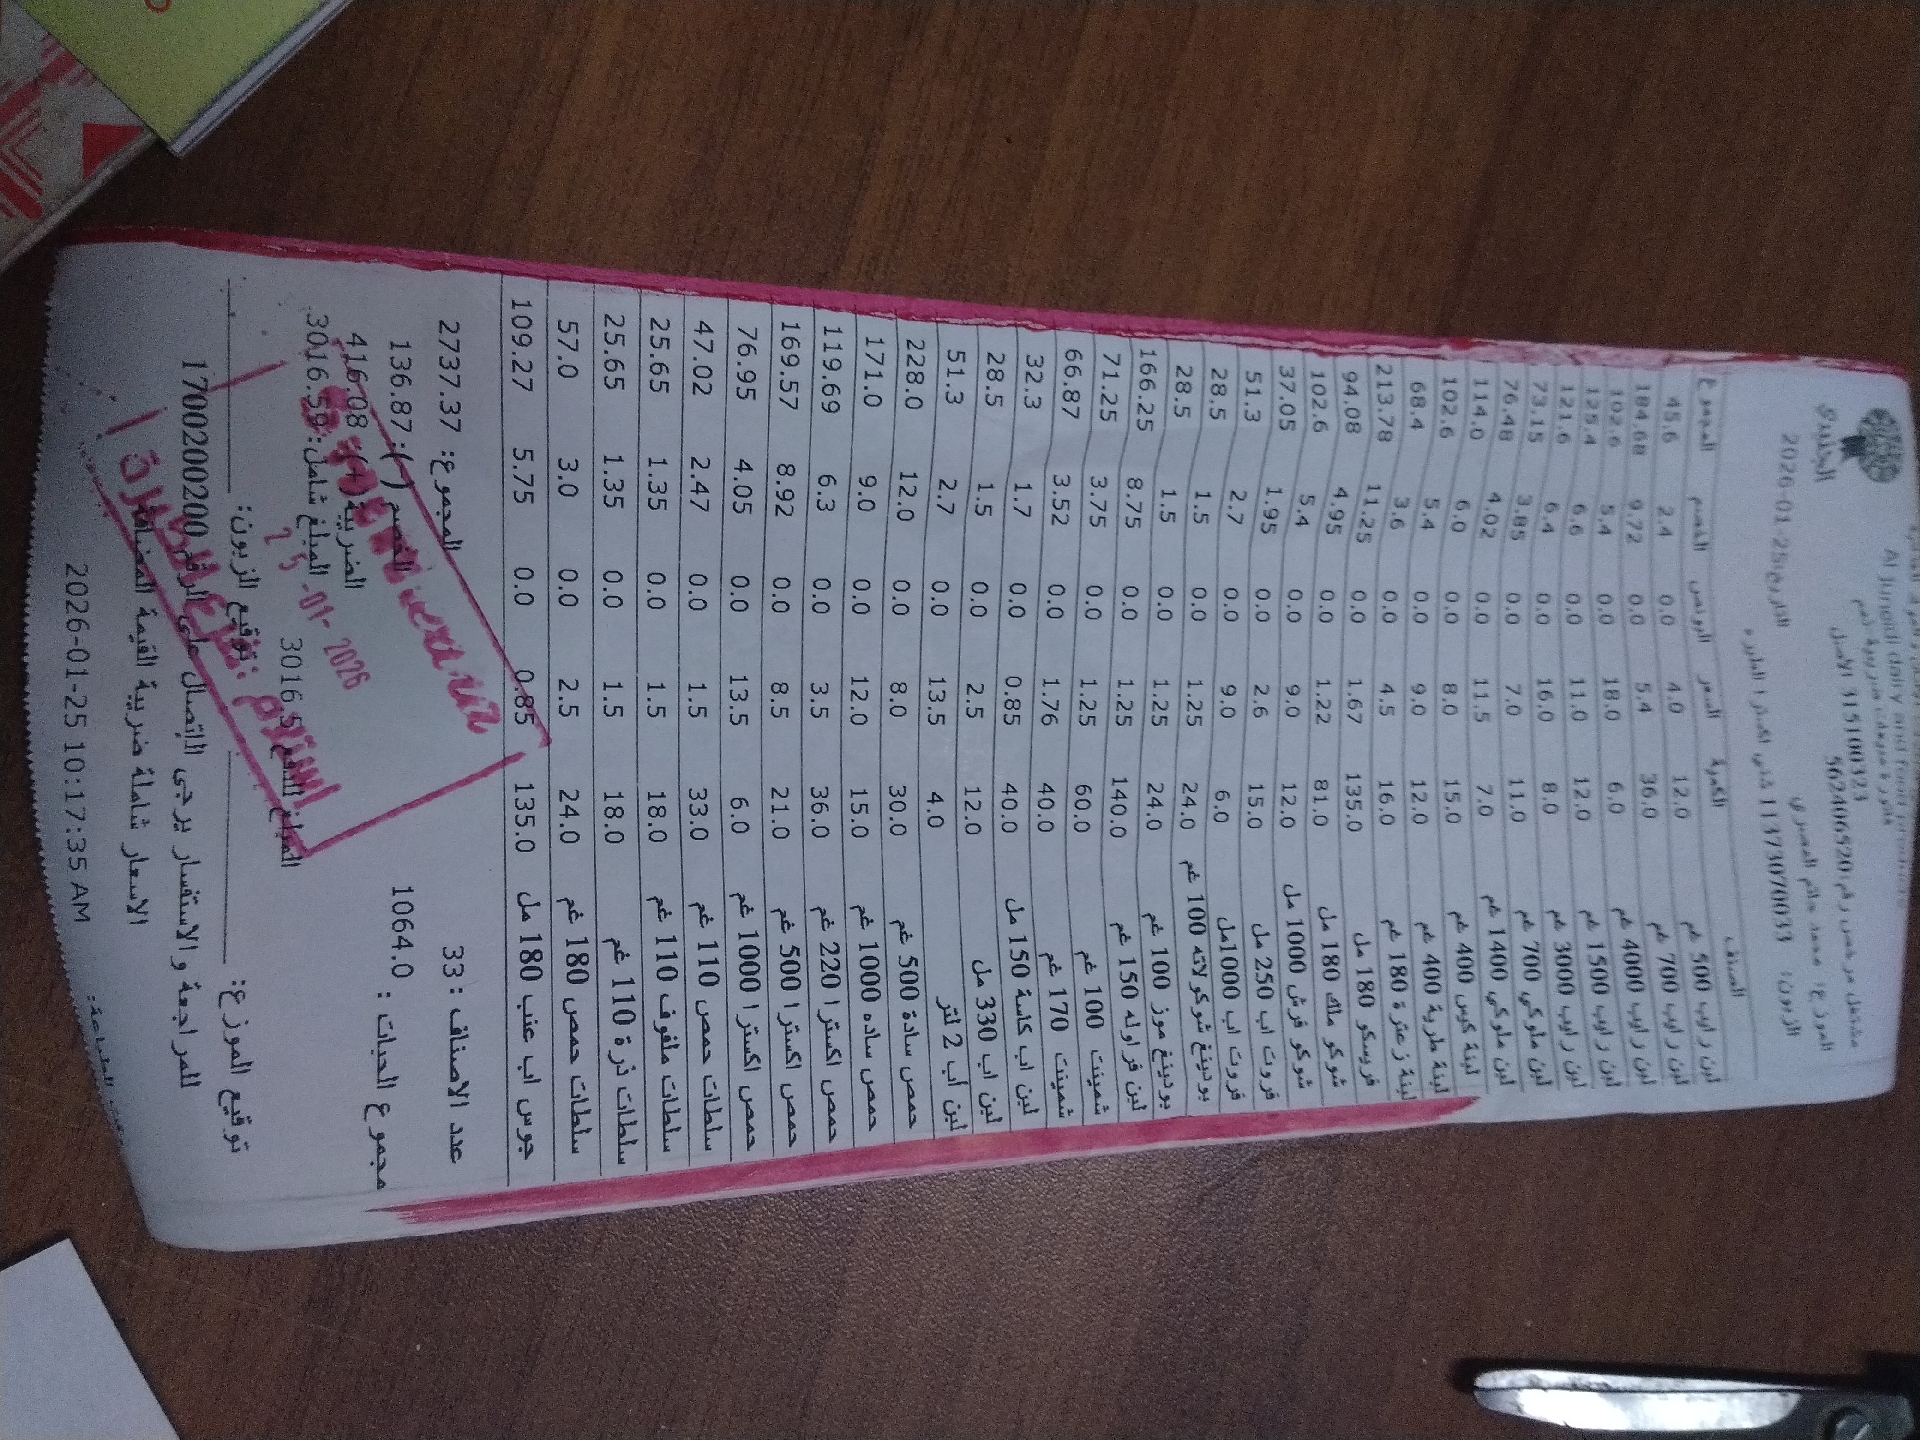 Al Juneidi dairy and food products
الجنيدي
فاتورة مبيعات ضريبية رقم
مشتغل مرخص رقم 562406520
315100323 الاصل
الموزع: محمد حاتم المصري
التاريخ: 2026-01-25
الزبون: 11373070033
الصنف الكمية السعر البونص الخصم المجموع
لبن رايب 500 غم 12.0 4.0 0.0 2.4 45.6
لبن رايب 700 غم 36.0 5.4 0.0 9.72 184.68
لبن رايب 4000 غم 6.0 18.0 0.0 5.4 102.6
لبن رايب 1500 غم 12.0 11.0 0.0 6.6 125.4
لبن رايب 3000 غم 8.0 16.0 0.0 6.4 121.6
لبن ملوكي 700 غم 11.0 7.0 0.0 3.85 73.15
لبن ملوكي 1400 غم 7.0 11.5 0.0 4.02 76.48
لبنة كيس 400 غم 15.0 8.0 0.0 6.0 114.0
لبنة طرية 400 غم 12.0 9.0 0.0 5.4 102.6
لبنة زعترة 180 غم 16.0 4.5 0.0 3.6 68.4
فريسكو 180 مل 135.0 1.67 0.0 11.25 213.78
شوكو ملك 180 مل 81.0 1.22 0.0 4.95 94.08
شوكو فرش 1000 مل 12.0 9.0 0.0 5.4 102.6
فروت اب 250 مل 15.0 2.6 0.0 1.95 37.05
فروت اب 1000مل 6.0 9.0 0.0 2.7 51.3
بودينغ شوكولاته 100 غم 24.0 1.25 0.0 1.5 28.5
بودينغ موز 100 غم 24.0 1.25 0.0 1.5 28.5
لبن فراوله 150 غم 140.0 1.25 0.0 8.75 166.25
شمينت 100 غم 60.0 1.25 0.0 3.75 71.25
شمينت 170 غم 40.0 1.76 0.0 3.52 66.87
لبن اب كاسة 150 مل 40.0 0.85 0.0 1.7 32.3
لبن اب 330 مل 12.0 2.5 0.0 1.5 28.5
لبن أب 2 لتر 4.0 13.5 0.0 2.7 51.3
حمص سادة 500 غم 30.0 8.0 0.0 12.0 228.0
حمص ساده 1000 غم 15.0 12.0 0.0 9.0 171.0
حمص اكسترا 220 غم 36.0 3.5 0.0 6.3 119.69
حمص اكسترا 500 غم 21.0 8.5 0.0 8.92 169.57
حمص اكسترا 1000 غم 6.0 13.5 0.0 4.05 76.95
سلطات حمص 110 غم 33.0 1.5 0.0 2.47 47.02
سلطات ملفوف 110 غم 18.0 1.5 0.0 1.35 25.65
سلطات ذرة 110 غم 18.0 1.5 0.0 1.35 25.65
سلطات حمص 180 غم 24.0 2.5 0.0 3.0 57.0
جوس اب عنب 180 مل 135.0 0.85 0.0 5.75 109.27
عدد الاصناف : 33 المجموع: 2737.37
مجموع الحبات : 1064.0 الخصم (-): 136.87
الضريبة(+): 416.08
المبلغ شامل: 3016.59
25 -01- 2026
3016.5
توقيع الموزع: توقيع الزبون:
للمراجعة والاستفسار يرجى الاتصال على الرقم 1700200200
الاسعار شاملة ضريبة القيمة المضافة
2026-01-25 10:17:35 AM